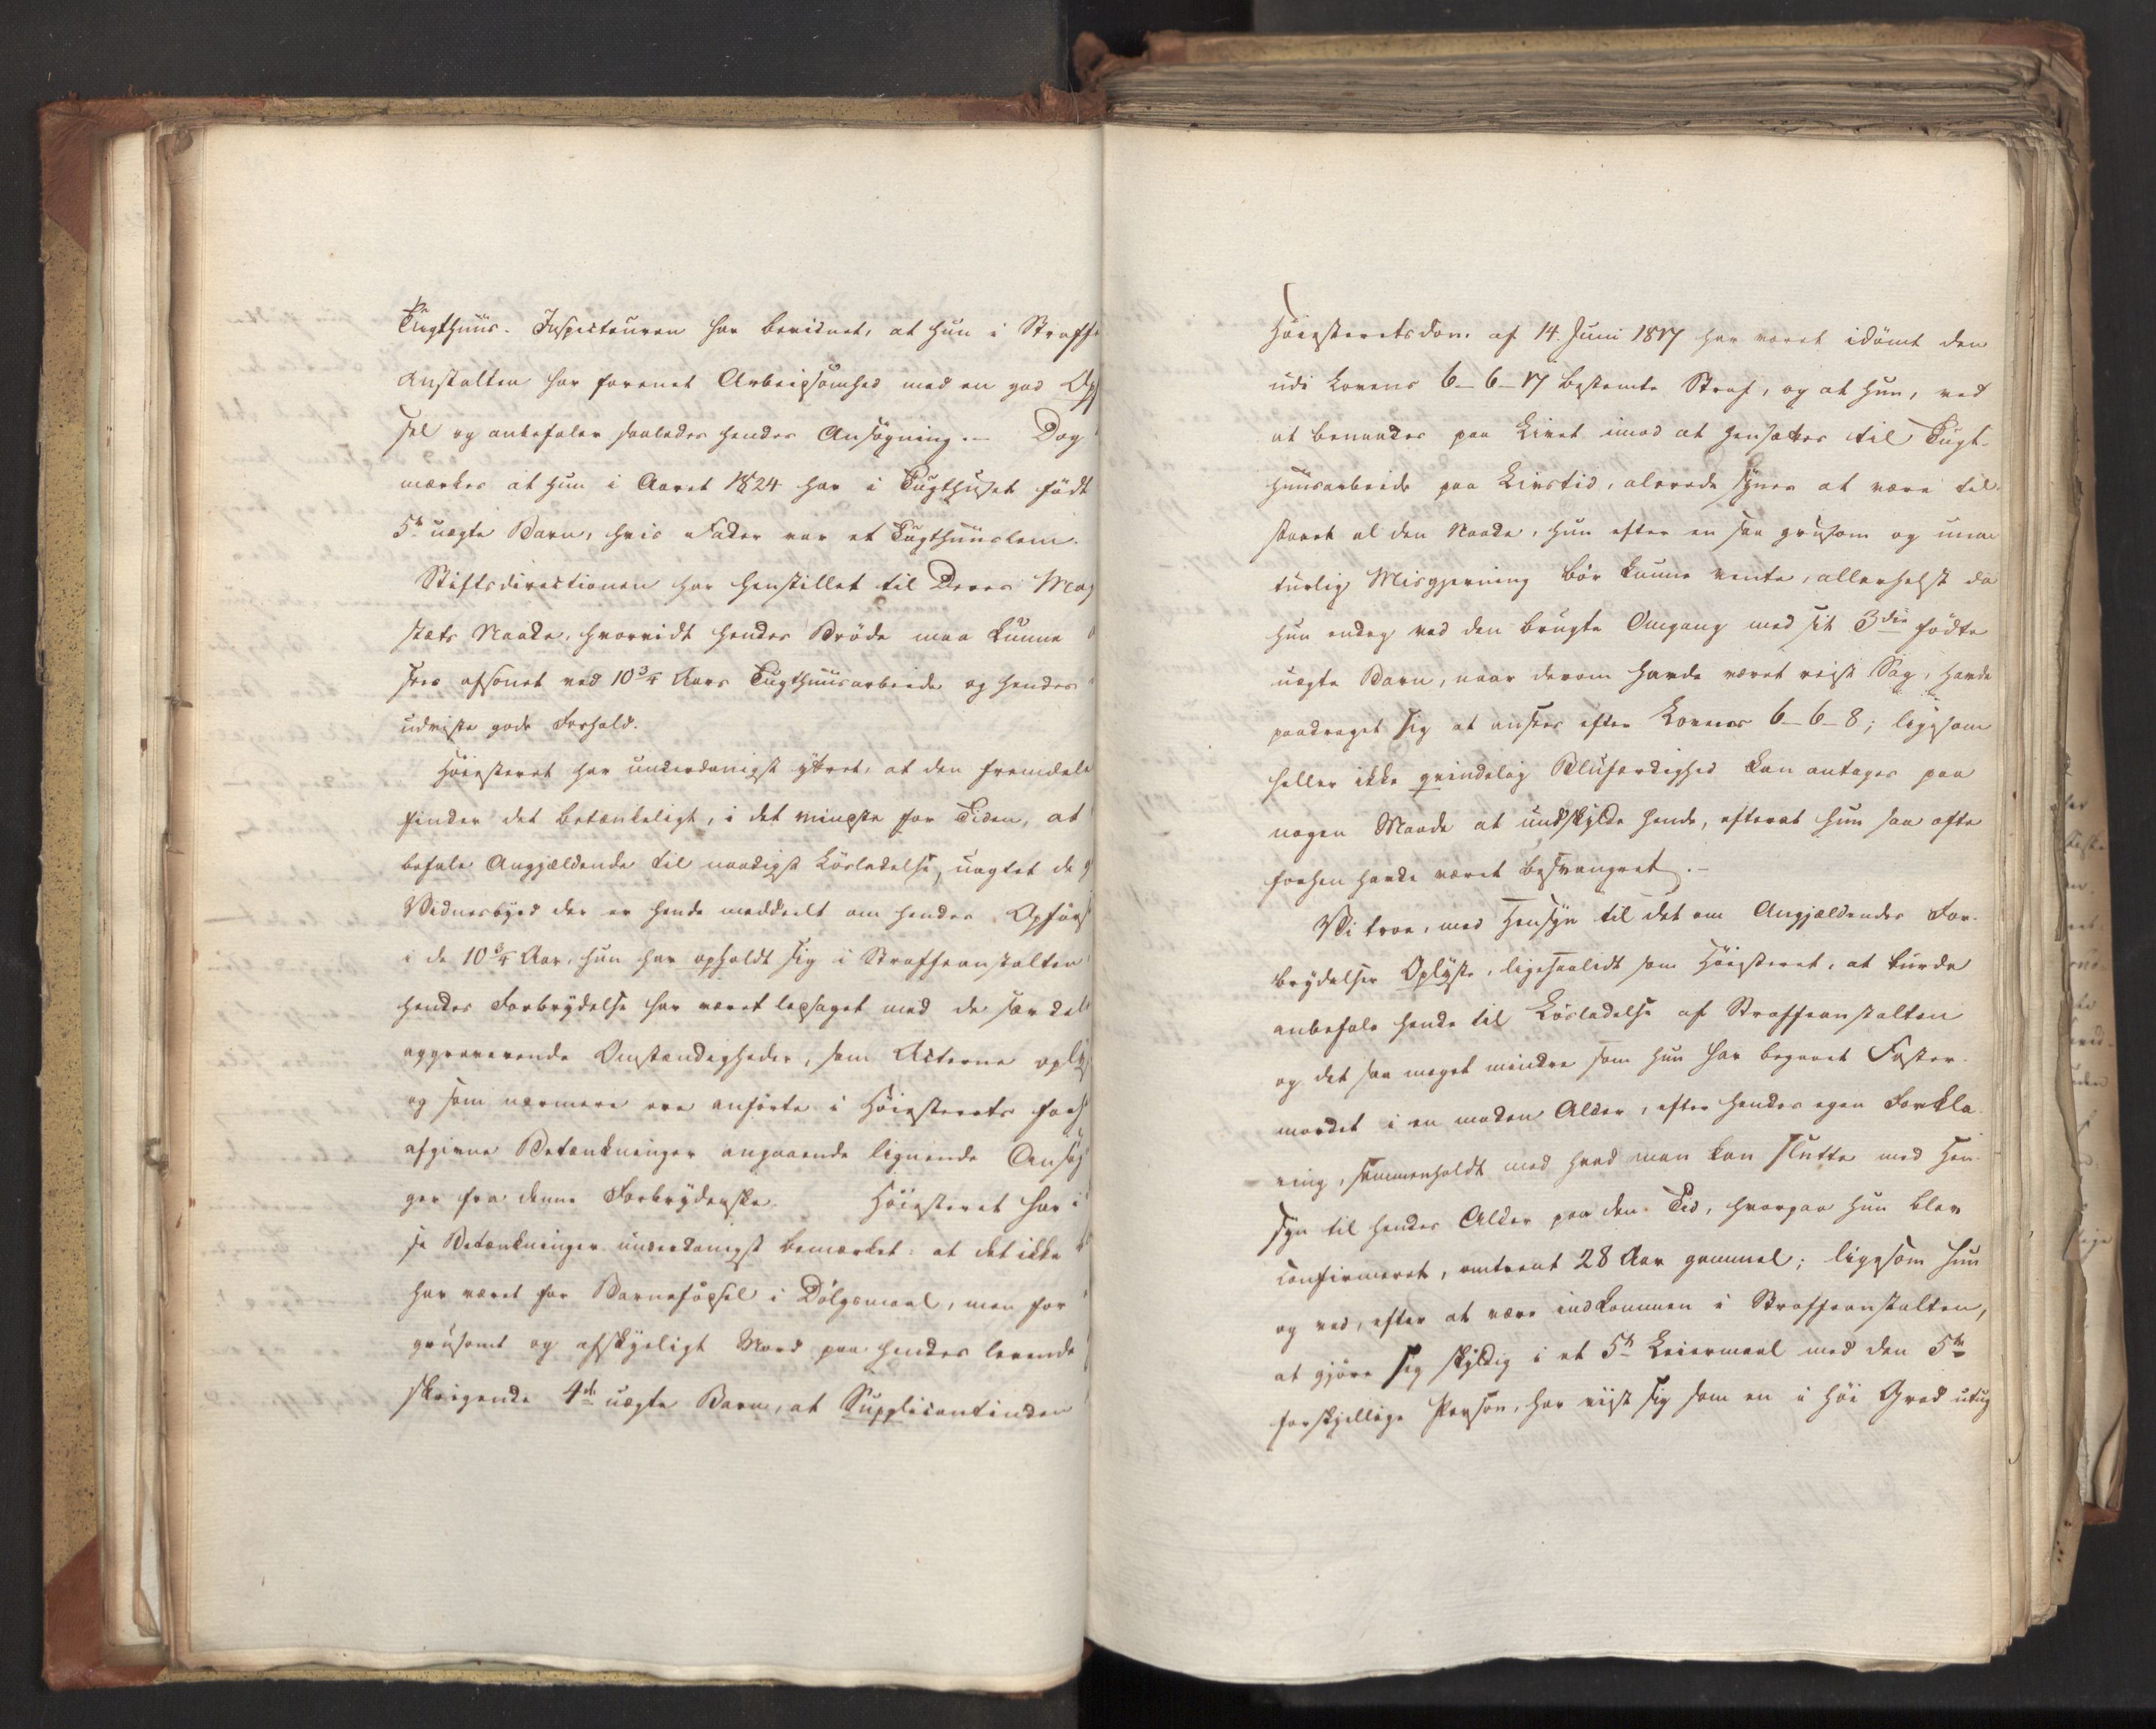 Tugthuus. Inspecteuren har bevidnet, at hun i Straffe
Anstalten har forenet Arbeidsomhed med en god Op
sel og anbefaler saaledes hendes Ansøgning. – Dog
mærkes at hun i Aaret 1824 har i Tugthuset født
5te uægte Barn, hvis Fader var et Tugthuuslem.
Stiftsdirectionen har henstillet til Deres Maj
stæts Naade, hvorvidt hendes Brøde maa kunne
sees afsonet ved 10¾ Aars Tugthuusarbeide og hendes
udviste gode Forhold.
Høiesteret har underdanigst yttret, at den fremdeles
finder det betænkeligt, i det mindste for Tiden, at
befale Angjældende til naadigst Løsladelse, uagtet de g
Vidnesbyrd der er hende meddeelt om hendes Opførs
i de 10¾ Aar, hun har opholdt sig i Straffeanstalten
hendes Forbrydelse har været ledsaget med de særdeles
aggraverende Omstændigheder, som Acterne oply
og som nærmere ere anførte i Høiesterets forh
afgivne Betænkninger angaaende lignende Ansøg
ger fra denne Forbryderske. Høiesteret har i
se Betænkninger underdanigst bemærket: at det ikke
har været for Barnefødsel i Dølgsmaal, men for
grusomt og afskyeligt Mord paa hendes levende
skrigende 4de uægte Barn, at Supplicantinden
Høiesteretsdom af 14. Juni 1817 har været idømt den
udi Lovens 6–6–17 bestemte Straf, og at hun, ved
at benaades paa Livet imod at hensættes til Tugt-
huusarbeide paa Livstid, alerede synes at være til-
staaet al den Naade, hun efter en saa grusom og una
turlig Misgjerning bør kunne vente, allerhelst da
hun endog ved den brugte Omgang med sit 3die fødte
uægte Barn, naar derom havde været reist Sag, havde
paadraget sig at ansees efter Lovens 6–6–8; ligesom
heller ikke qvindelig Blufærdighed kan antages paa
nogen Maade at undskylde hende, efterat hun saa ofte
forhen havde været besvangret. –
Vi troe, med Hensyn til det om Angjældendes For-
brydelser Oplyste, ligesaalidt som Høiesteret, at burde
anbefale hende til Løsladelse af Straffeanstalten
og det saa meget mindre som hun har begaaet Foster-
mordet i en moden Alder, efter hendes egen Forkla-
ring, sammenholdt med hvad man kan slutte med Hen-
syn til hendes Alder paa den Tid, hvorpaa hun blev
confirmeret, omtrent 28 Aar gammel; ligesom hun
og ved, efter at være indkommen i Straffeanstalten,
at gjøre sig skyldig i et 5te Leiermaal med den 5te
forskjellige Person, har viist sig som en i høi Grad utug